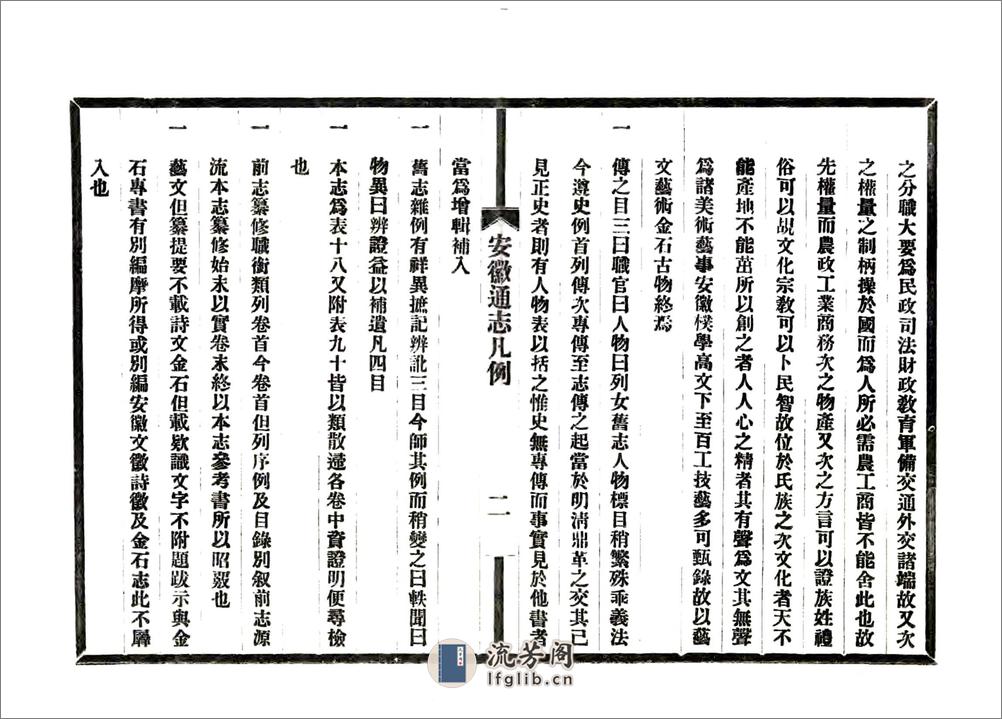 之分職大要爲民政司法財政敎育軍備交通外交諸端故又次
之權量之制柄操於國而爲人所必需農工商皆不能舍此也故
先權量而農政工業商務次之物產又次之方言可以證族姓禮
俗可以覘文化宗敎可以卜民智故位於氏族之次文化者天不
能產地不能茁所以創之者人人心之精者其有聲爲文其無聲
爲諸美術藝事安徽樸學高文下至百工技藝多可甄錄故以藝
文藝術金石古物終焉
一 傳之目三曰職官曰人物曰列女舊志人物標目稍繁殊乖義法
今遵史例首列傳次專傳至志傳之起當於明淸鼎革之交其已
見正史者則有人物表以括之惟史無專傳而事實見於他書者
安徽通志凡例 二
當爲增輯補入
一 舊志雜例有祥異摭記辨訛三目今師其例而稍變之曰軼聞曰
物異曰辨證益以補遺凡四目
一 本志爲表十八又附表九十皆以類散遼各卷中資證明便尋檢
也
一 前志纂修職銜類列卷首今卷首但列序例及目錄別叙前志源
流本志纂修始末以實卷末終以本志參考書所以昭覈也
一 藝文但纂提要不載詩文金石但載欵識文字不附題跋示與金
石專書有別編摩所得或別編安徽文徵詩徵及金石志此不羼
入也
流芳阁
lfglib.cn